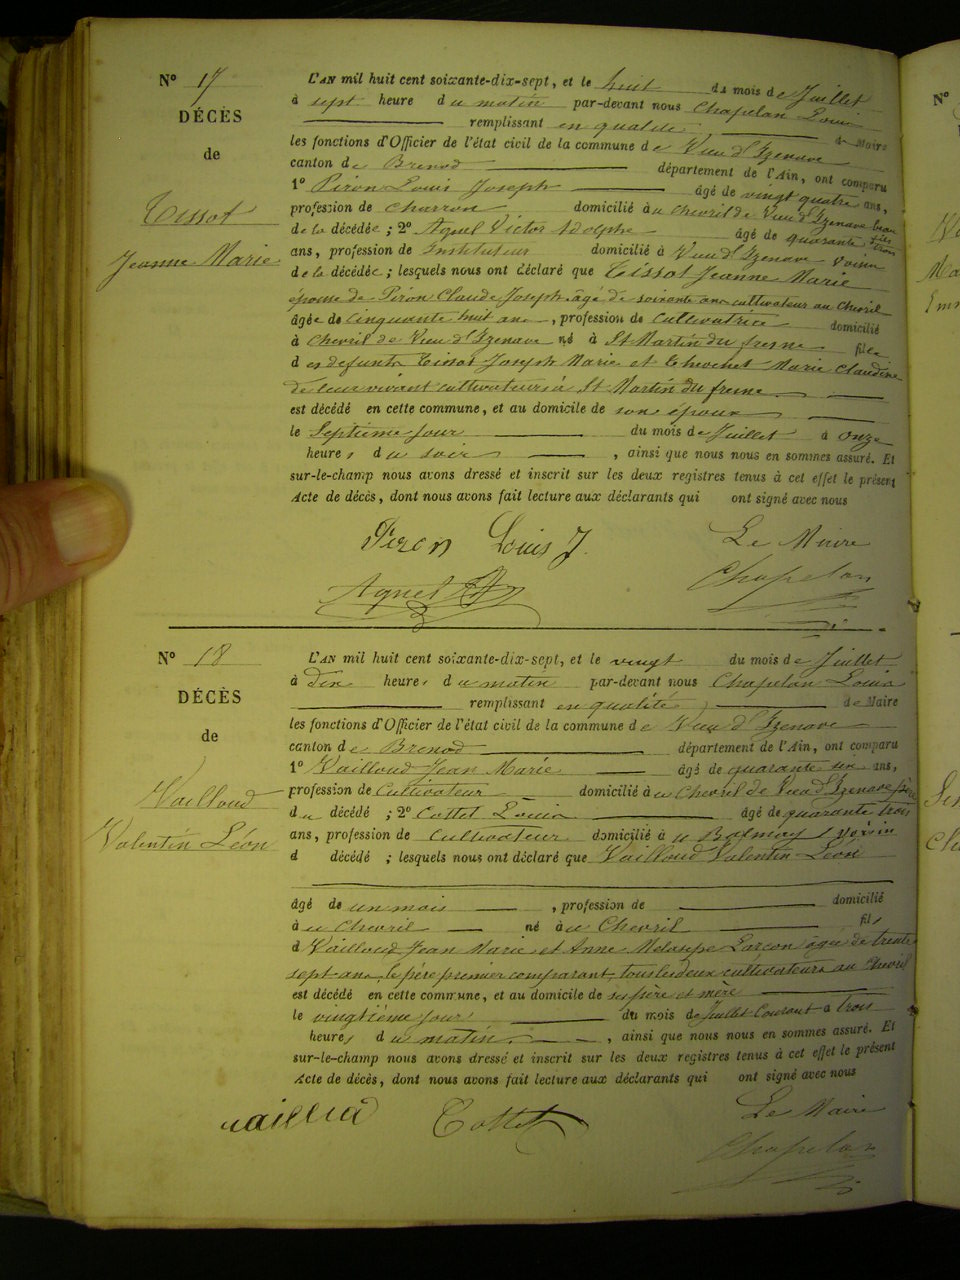 Nº 17
DÉCÈS
de
Tissot
Jeanne Marie
L'AN mil huit cent soixante-dix-sept, et le huit du mois de Juillet
à sept heure du matin par-devant nous Chapelan Louis
remplissant en qualité de Maire
les fonctions d'Officier de l'état civil de la commune de Vieu d'Izenave
canton de Brenod département de l'Ain, ont comparu
1º Piron Louis Joseph âgé de vingt quatre ans,
profession de charron domicilié à au Chevril de Vieu d'Izenave beau fils
de la décédée ; 2º Agnel Victor Adolphe âgé de quarante trois
ans, profession de Instituteur domicilié à Vieu d'Izenave voisin
de la décédée ; lesquels nous ont déclaré que Tissot Jeanne Marie
épouse de Piron Claude Joseph âgé de soixante ans cultivateur au Chevril
âgée de cinquante huit ans, profession de cultivatrice domicilié
à Chevril de Vieu d'Izenave né à St Martin du fresne fille
des defunts Tissot Joseph Marie et Marie Claudine
de leur vivant cultivateurs à St Martin du fresne
est décédé en cette commune, et au domicile de son époux
le Septième jour du mois de Juillet à onze
heures du soir , ainsi que nous nous en sommes assuré. Et
sur-le-champ nous avons dressé et inscrit sur les deux registres tenus à cet effet le présent
Acte de décès, dont nous avons fait lecture aux déclarants qui ont signé avec nous
Piron Louis J. Le Maire
Agnel Chapelan
Nº 18
DÉCÈS
de
Vailloud
Valentin Léon
L'AN mil huit cent soixante-dix-sept, et le vingt du mois de Juillet
à dix heures du matin par-devant nous Chapelan Louis
remplissant en qualité de Maire
les fonctions d'Officier de l'état civil de la commune de Vieu d'Izenave
canton de Brenod département de l'Ain, ont comparu
1º Vailloud Jean Marie âgé de quarante un ans,
profession de Cultivateur domicilié à au Chevril de Vieu d'Izenave père
du décédé ; 2º Cottet Louis âgé de quarante trois
ans, profession de Cultivateur domicilié à au Balmay, voisin
d décédé ; lesquels nous ont déclaré que Vailloud Valentin Léon
âgé de un mois , profession de domicilié
à au Chevril né à au Chevril fils
d Vailloud Jean Marie et Anne Larçon âgée de trente
sept ans, le père premier comparant, tous les deux cultivateurs au Chevril
est décédé en cette commune, et au domicile de ses père et mère
le vingtième jour du mois de Juillet Courant à trois
heures du matin , ainsi que nous nous en sommes assuré. Et
sur-le-champ nous avons dressé et inscrit sur les deux registres tenus à cet effet le présent
Acte de décès, dont nous avons fait lecture aux déclarants qui ont signé avec nous
Le Maire
vailloud Cottet
Chapelan
Nº